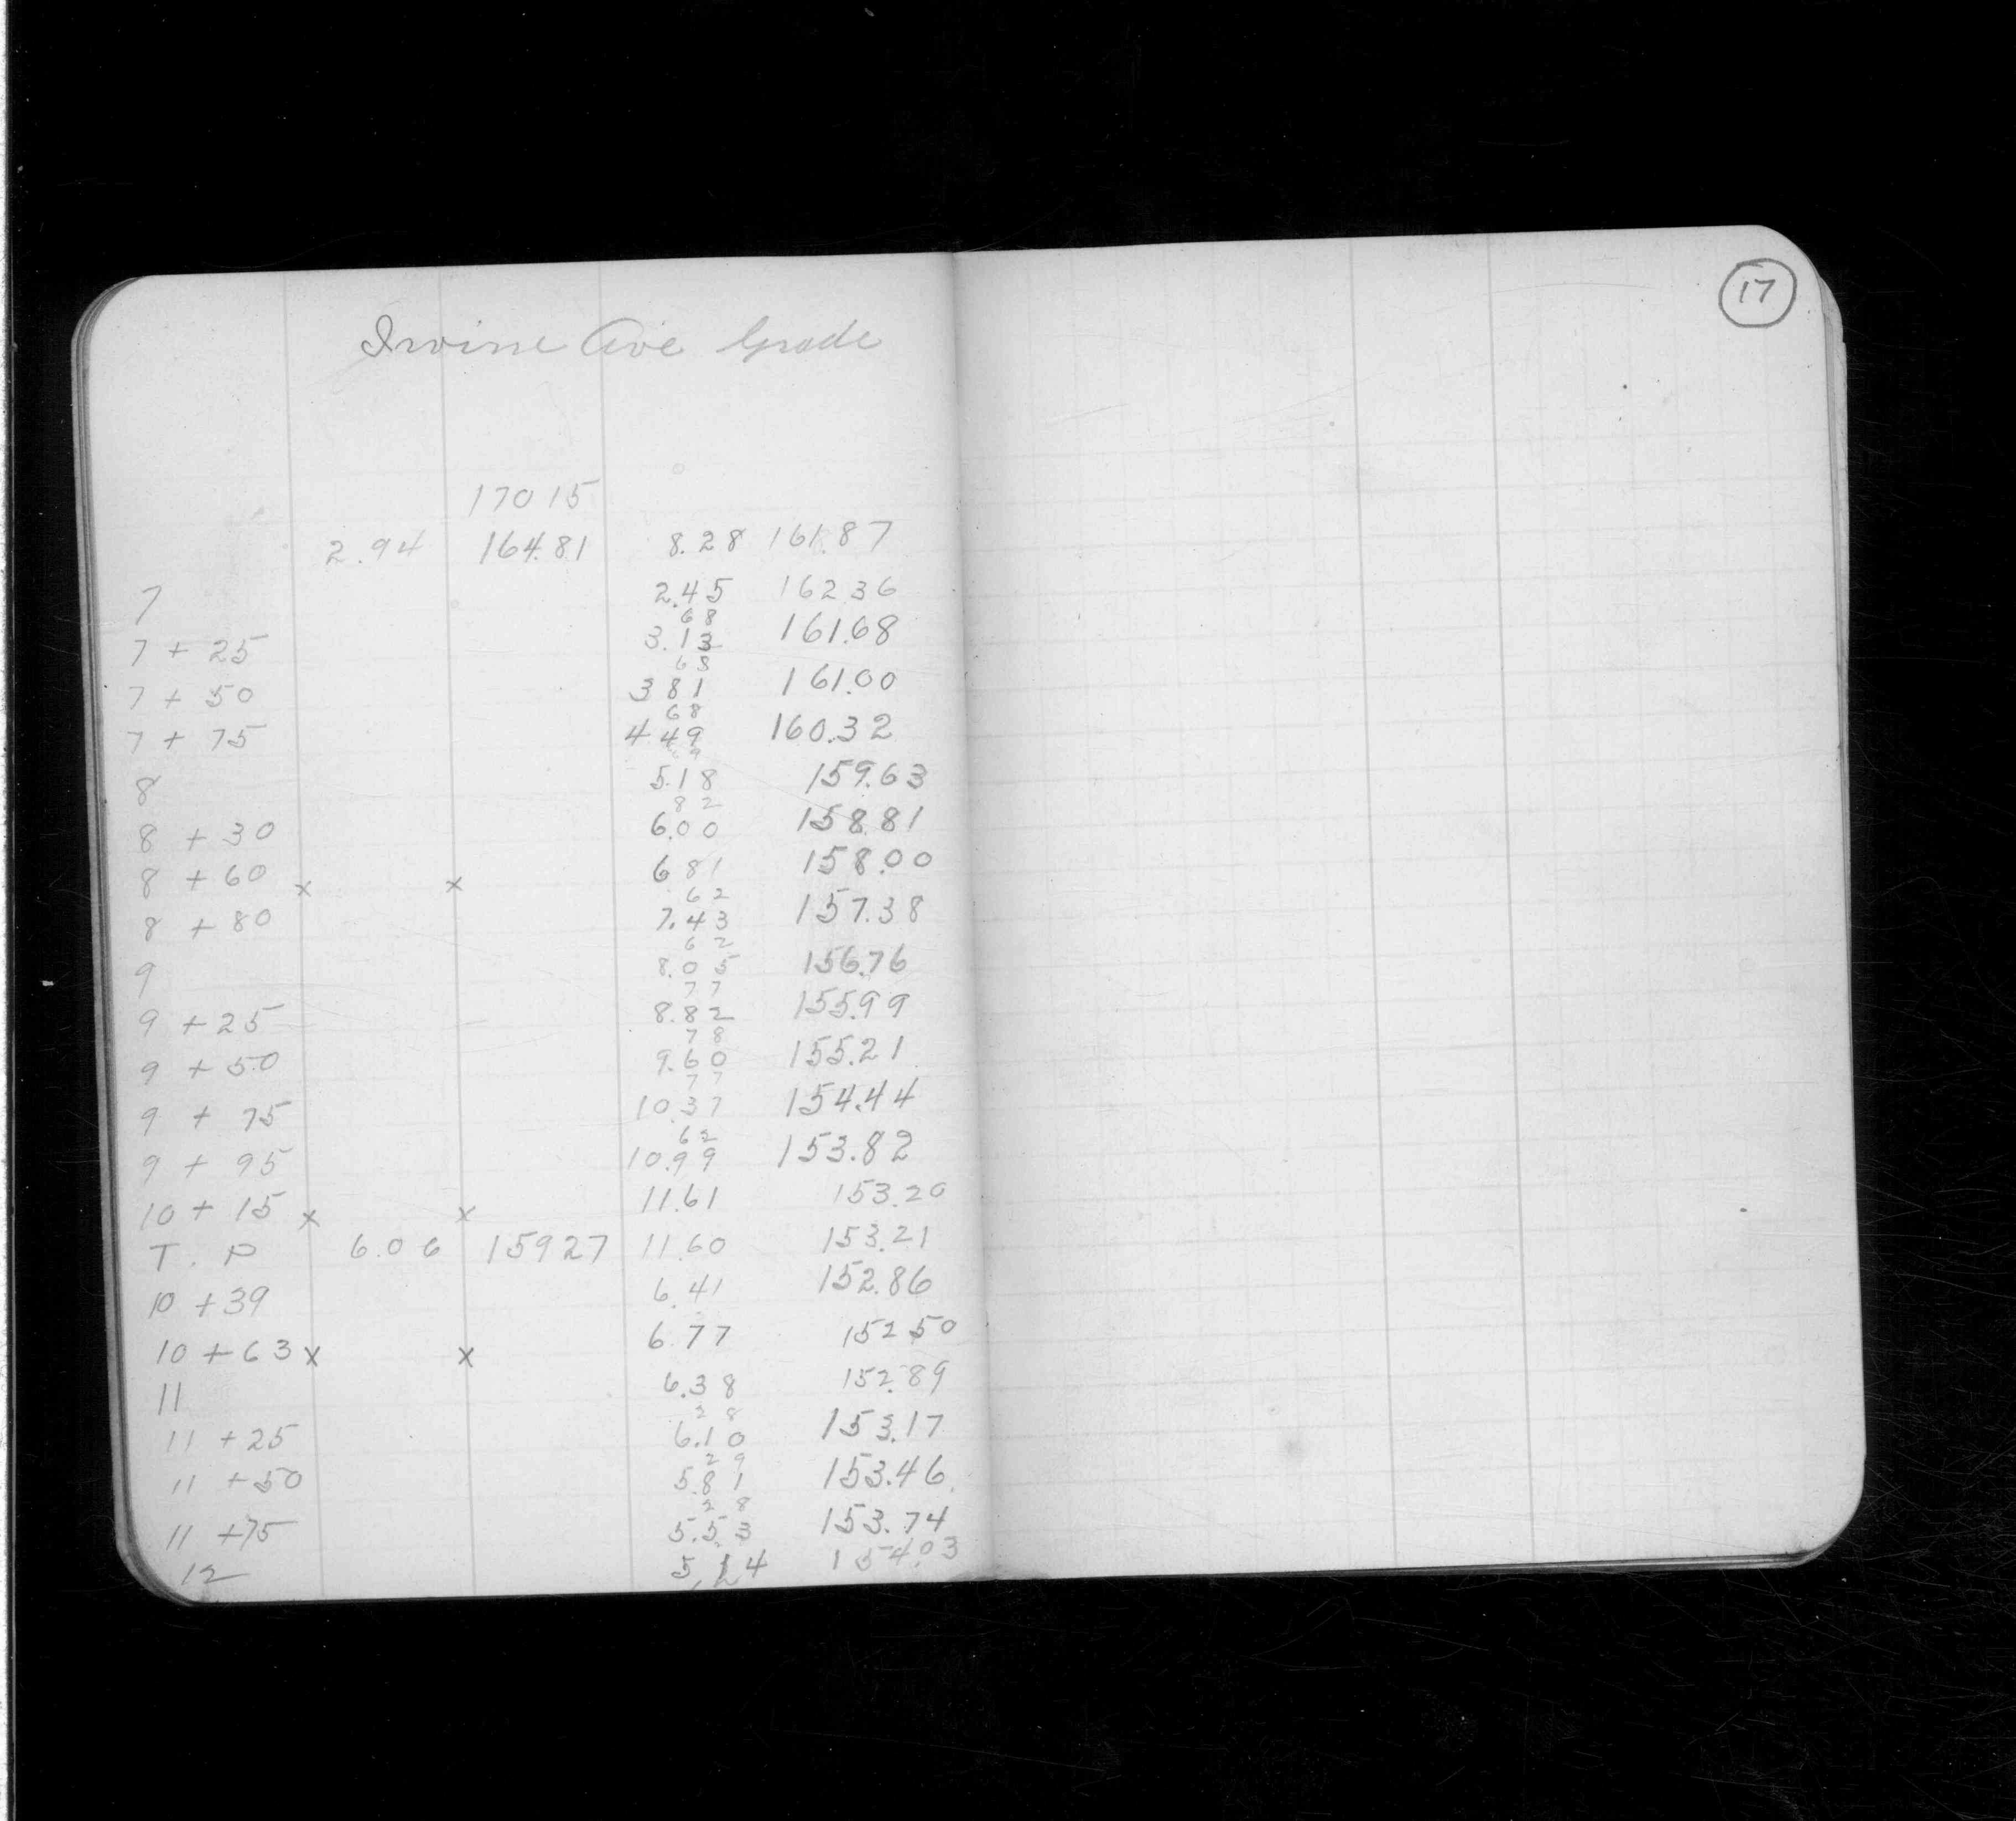 17
Irvine Ave Grade
170 15
2.94 164.81 8.28 161.87
7 2.45 162 36
68
7 + 25 3.13 161.68
68
7 + 50 3 81 161.00
68
7 + 75 4 49 160.32
9
8 5.18 159.63
82
8 + 30 6.00 158.81
8 + 60 x x 6 81 158.00
62
8 + 80 7.43 157.38
62
9 8.05 156.76
77
9 + 25 8.82 155.99
78
9 + 50 9.60 155.21
77
9 + 75 10.37 154.44
62
9 + 95 10.99 153.82
10 + 15 x x 11.61 153.20
T. P 6.06 159 27 11.60 153.21
10 + 39 6.41 152.86
10 + 63 x x 6.77 152 50
11 6.38 152.89
28
11 + 25 6.10 153.17
29
11 + 50 5.81 153.46
28
11 + 75 5.53 153.74
12 154.03